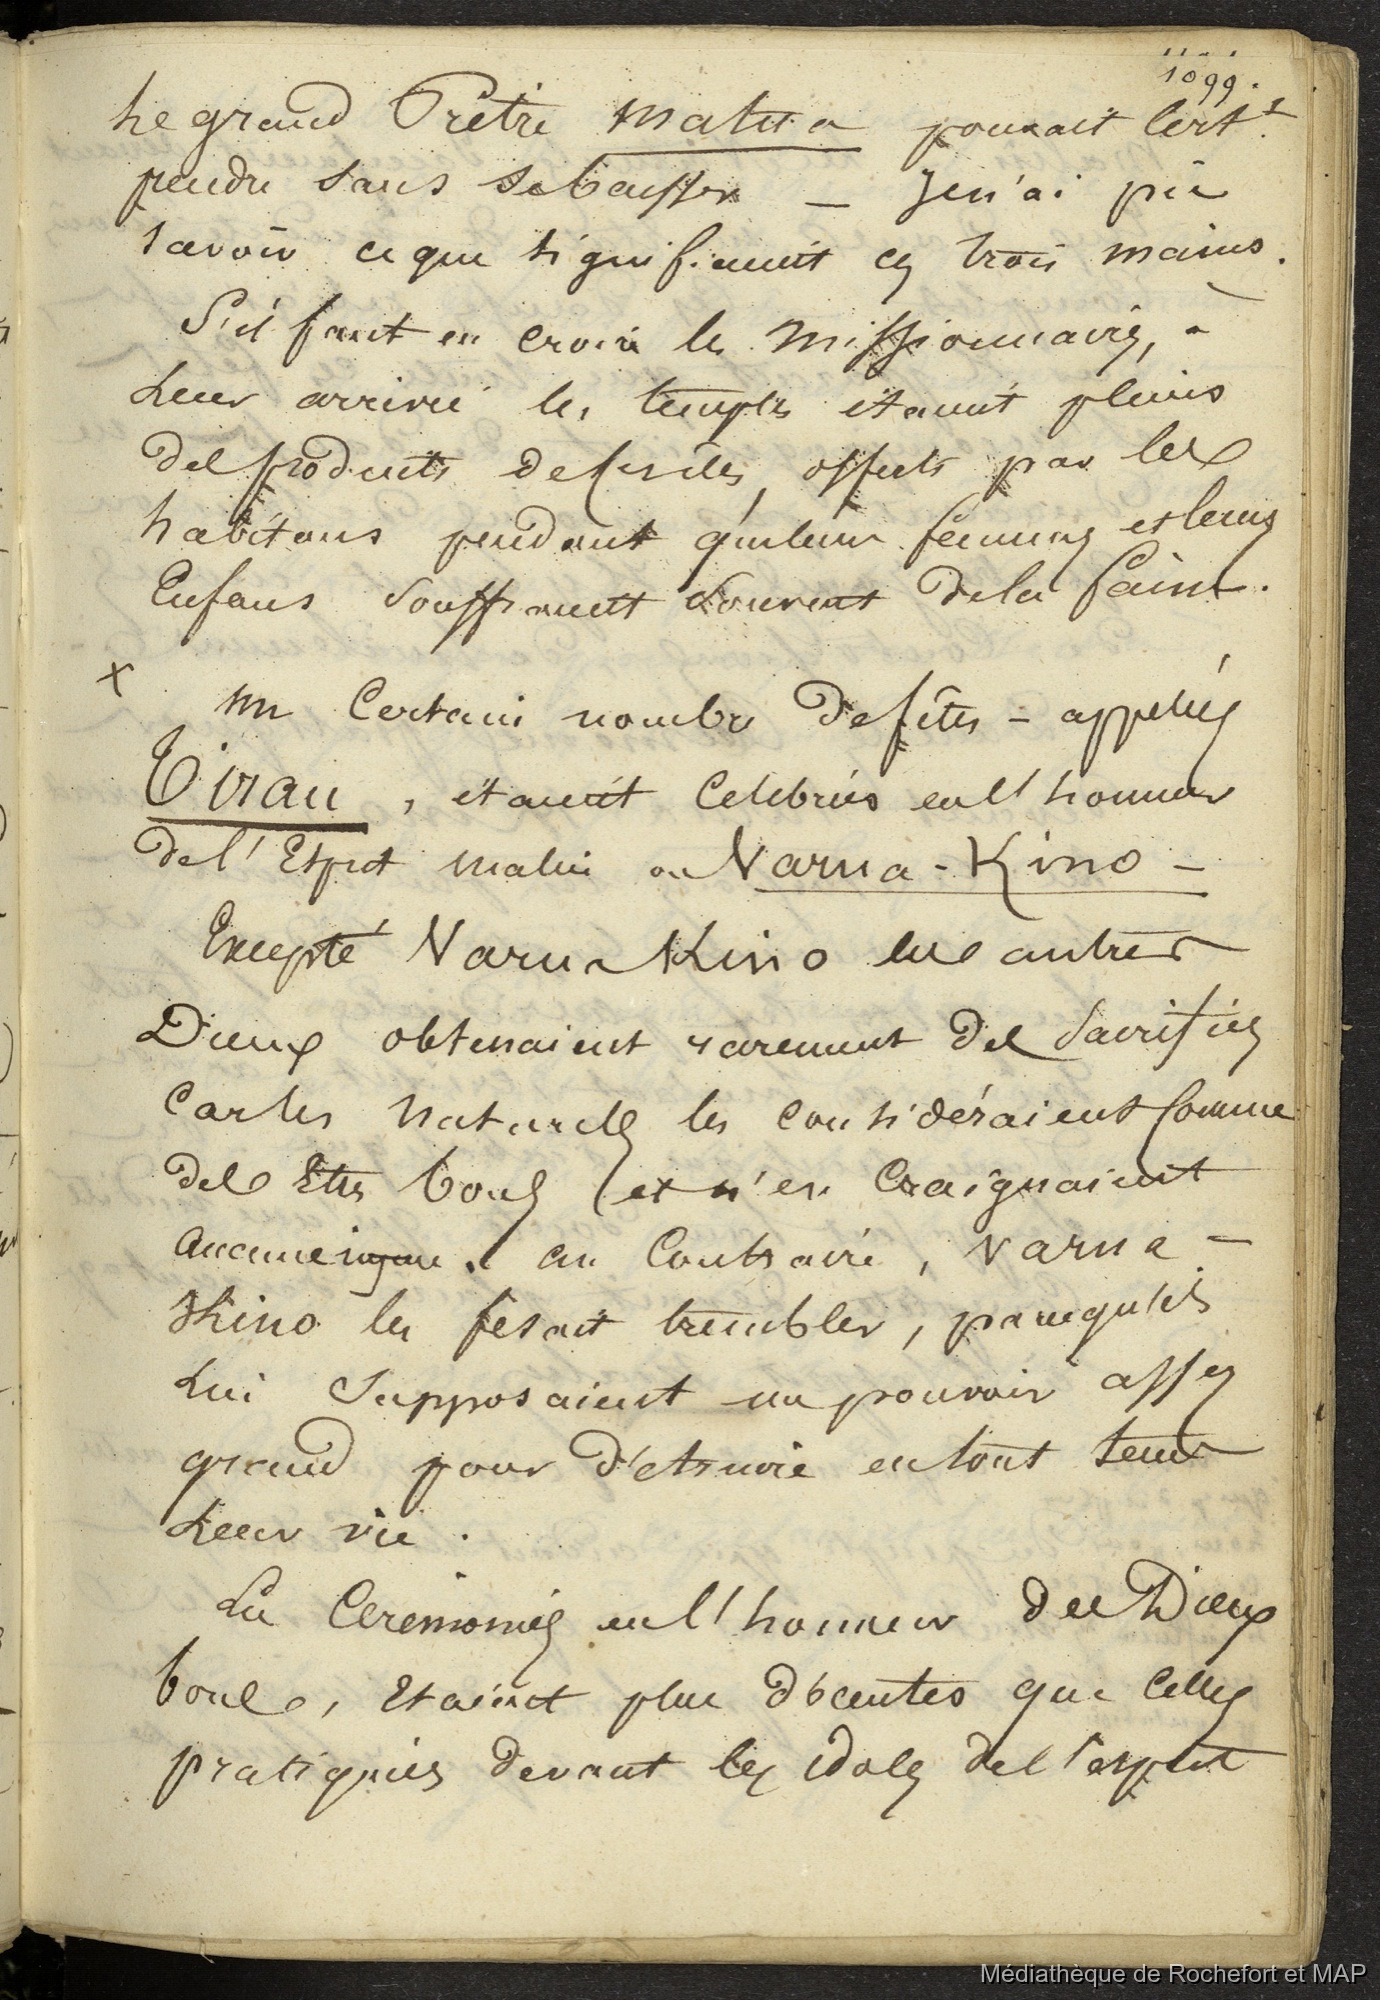 1099.
Le grand Prêtre Matua pouvait les
prendre sans se baisser — Je n'ai pu
savoir ce que signifiaient ces trois mains.
S'il faut en croire les Missionnaires, à
Leur arrivée les temples étaient pleins
des produits des isles, offerts par les
habitans pendant que leurs femmes et leurs
Enfans souffraient souvent de la faim.
x Un Certain nombre de fêtes - appelées
Tirau, étaient Celebrées en l'honneur
de l'Esprit malin ou Varua-Kino -
Excepté Varua Kino les autres
Dieux obtenaient rarement des Sacrifices
Car les Naturels les considéraient comme
des Etres bons (et n'en Craignaient
aucune injure. au Contraire, Varua-
Kino les fesait trembler, parcequ'ils
Lui Supposaient un pouvoir assez
grand pour détruire en tout tems
Leur vie.
Les Ceremonies en l'honneur des Dieux
bons, Etaient plus décentes que Celles
pratiquées devant les idoles de l'esprit
Médiathèque de Rochefort et MAP